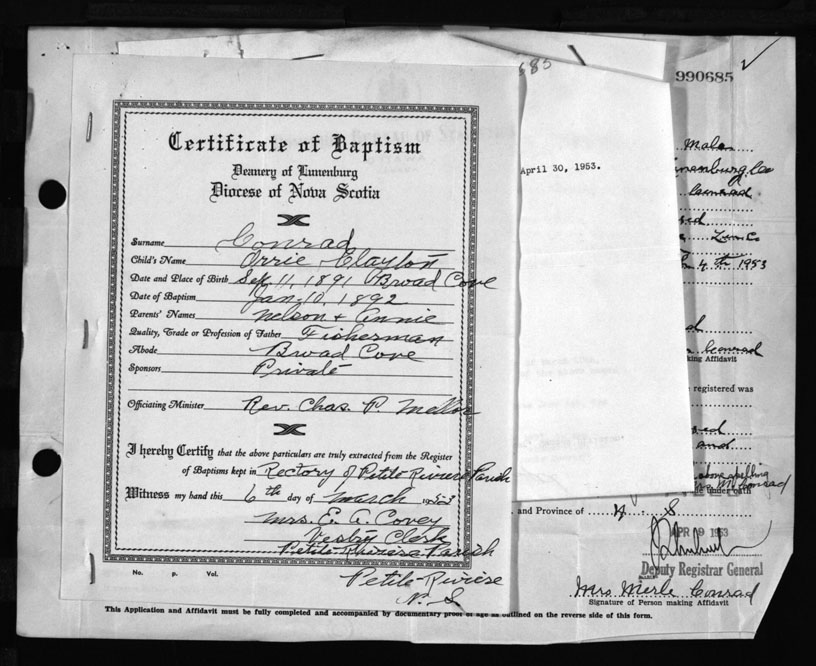 685
990685
Certificate of Baptism
Deanery of Lunenburg
Diocese of Nova Scotia
Surname Conrad
Child's Name Orrie Clayton
Date and Place of Birth Sep. 11, 1891 Broad Cove
Date of Baptism Jan. 10, 1892
Parents' Names Nelson + Annie
Quality, Trade or Profession of Father Fisherman
Abode Broad Cove
Sponsors Private
Officiating Minister Rev. Chas. P. Mellor
I hereby Certify that the above particulars are truly extracted from the Register
of Baptisms kept in Rectory of Petite Riviere Parish
Witness my hand this 6th day of March 1953
Mrs. E. A. Covey
Vestry Clerk
Petite Riviere Parish
Petite Riviere
N. S.
No. P. Vol.
April 30, 1953.
Male
Lunenburg Co
Conrad
Lun. Co
4th 1953
Conrad
king Affidavit
e registered was
and
above spelling
Mrs M Conrad
under oath
and Province of N. S
APR 9 1953
Deputy Registrar General
Mrs Merle Conrad
Signature of Person making Affidavit
This Application and Affidavit must be fully completed and accompanied by documentary proof of age as outlined on the reverse side of this form.